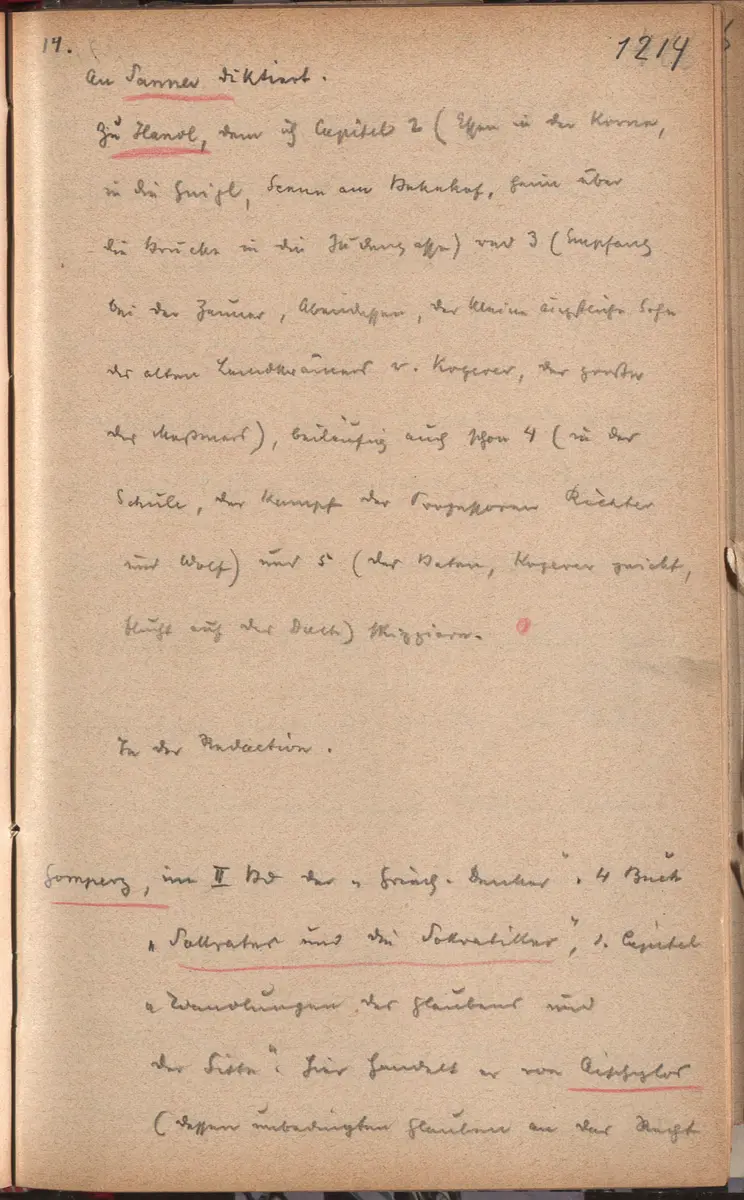 14.
1214
An Sanner diktiert.
Zu Handl, dem ich Capitel 2 (Essen in der Krone,
in die Gnigl, Scene am Bahnhof, heim über
die Brücke in die Judengasse) und 3 (Empfang
bei der Zeuner, Abendessen, der kleine ängstliche Sohn
des alten Landkrämers v. Kogerer, der große
des Meßmers), beiläufig auch schon 4 (in der
Schule, der Kampf der Professoren Richter
und Wolf) und 5 (das Baden, Kogerer
Flucht auf das Dach) skizziere.
In der Redaction.
Gomperz, im II Bd der „Griech. Denker“. 4 Buch
„Sokrates und die Sokratiker“, 1. Capitel
„Wandlungen des Glaubens und
der Sitte“. Hier handelt er von Aischylos
(dessen unbedingten Glauben an das Recht